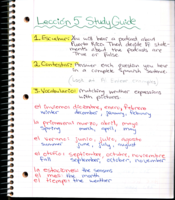 Lección 5 Study Guide
1. Escuchar: You will hear a podcast about
Puerto Rico. Then decide if state-
ments about the podcast are
True or False
2. Contestar: Answer each question you hear
in a complete Spanish sentence.
3. Vocabulario: matching weather expressions
with pictures.
el invierno: diciembre, enero, febrero
winter december, january, february
la primavera: marzo, abril, mayo
Spring march, april, may
el verano: junio, julio, agosto
Summer june, july, august
el otoño: septiembre, octubre, noviembre
Fall september, october, november
la estación: the seasons
el mes: the month
el tiempo: the weather